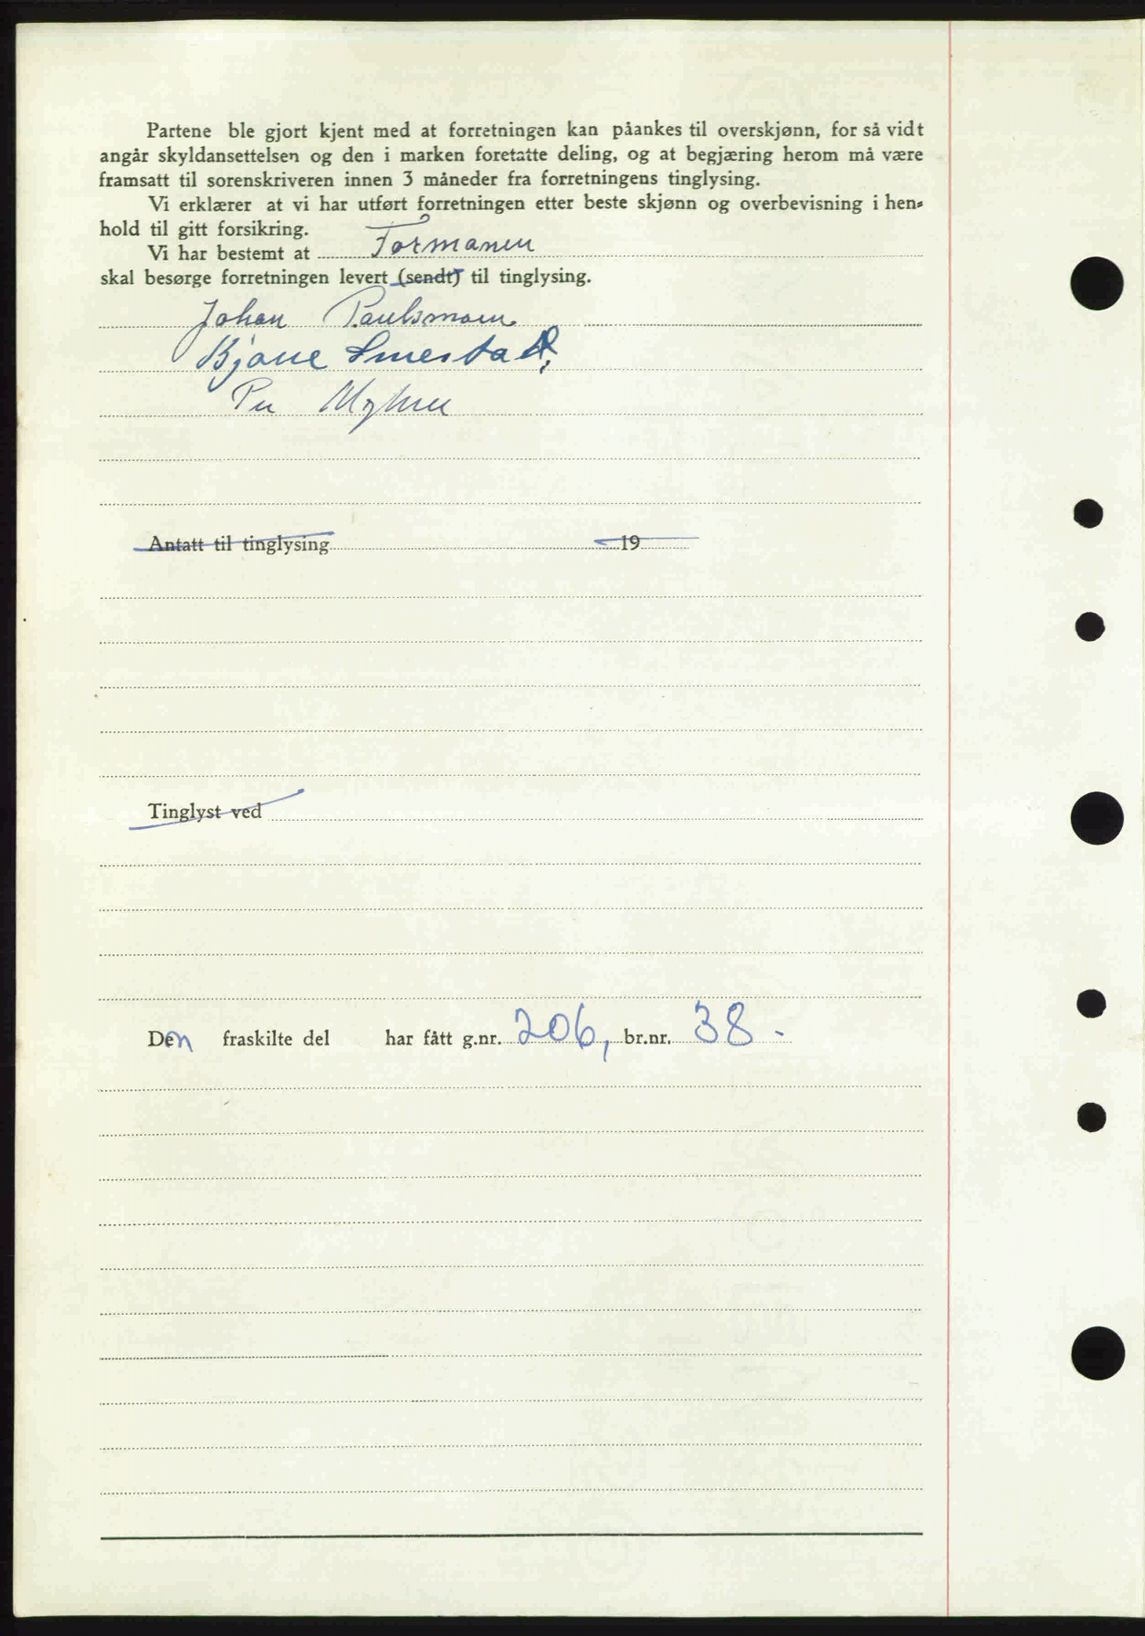 Partene ble gjort kjent med at forretningen kan påankes til overskjønn, for så vidt
angår skyldansettelsen og den i marken foretatte deling, og at begjæring herom må være
framsatt til sorenskriveren innen 3 måneder fra forretningens tinglysing.
Vi erklærer at vi har utført forretningen etter beste skjønn og overbevisning i hen-
hold til gitt forsikring.
Vi har bestemt at Formanen
skal besørge forretningen levert (sendt) til tinglysing.
Johan
Bjarne Smestad,
Per Myhre
Antatt til tinglysing 19
Tinglyst ved
Den fraskilte del har fått g.nr. 206, br.nr. 38 -